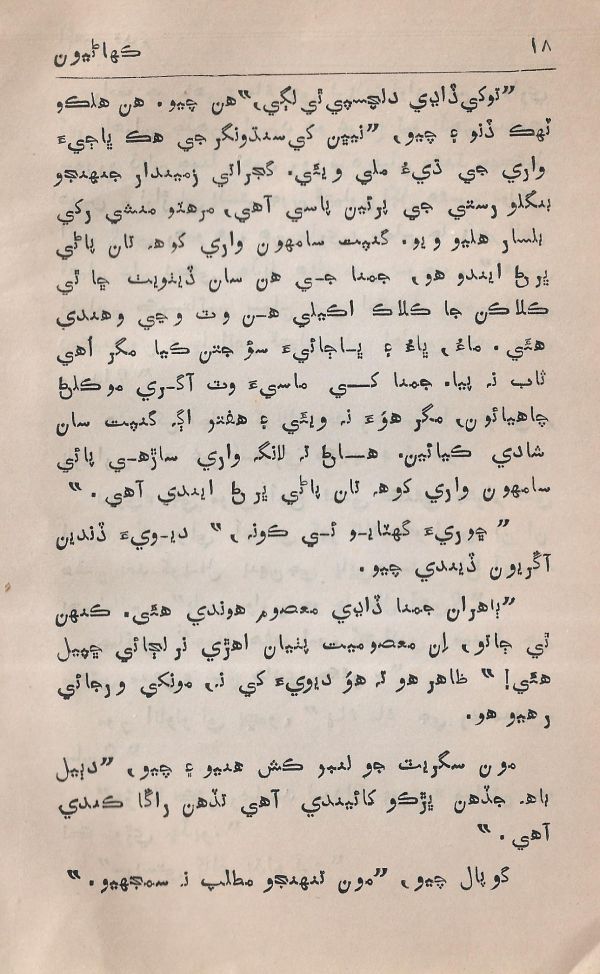 ۱۸
ڪهاڻيون
”توکي ڏاڍي دلچسپي ٿي لڳي،“ هن چيو. هن هلڪو
ٽهڪ ڏنو ۽ چيو، ”نيپن کي سنڌونگر جي هڪ ڀاڄيءَ
واري جي ڌيءُ ملي ويئي. گجراتي زميندار جنهنجو
بنگلو رستي جي پرئين پاسي آهي، مرهٽو منشي رکي
بلسار هليو ويو. گنپت سامهون واري کوهہ تان پاڻي
ڀرڻ ايندو هو، جمنا جي هن سان ڏيٺويٺ ڇا ٿي
ڪلاڪن جا ڪلاڪ اڪيلي هن وٽ وڃي وهندي
هئي. ماءُ، ڀاءُ ۽ ڀاڄائيءَ سؤ جتن ڪيا مگر اُهي
ٽاب نہ پيا. جمنا کي ماسيءَ وٽ آگري موڪلڻ
چاهيائون، مگر هوءَ نہ ويئي ۽ هفتو اڳہ گنپت سان
شادي ڪيائين. هاڻ تہ لانگہ واري ساڙهي پائي
سامهون واري کوهہ تان پاڻي ڀرڻ ايندي آهي.“
”ڇوريءَ گهٽايو ئي ڪونہ،“ ديويءَ ڏندين
آڱريون ڏيندي چيو.
”ٻاهران جمنا ڏاڍي معصوم هوندي هئي. ڪنهن
ٿي ڄاتو، اِن معصوميت پٺيان اهڙي نرلڄائي ڇپيل
هئي!“ ظاهر هو تہ هوُ ديويءَ کي نہ، مونکي ورجائي
رهيو هو.
مون سگريٽ جو لنبو ڪش هنيو ۽ چيو، ”دٻيل
باهہ جڏهن ڀڙڪو کائيندي آهي تڏهن راڱا ڪندي
آهي.“
گوپال چيو، ”مون تنهنجو مطلب نہ سمجهيو.“